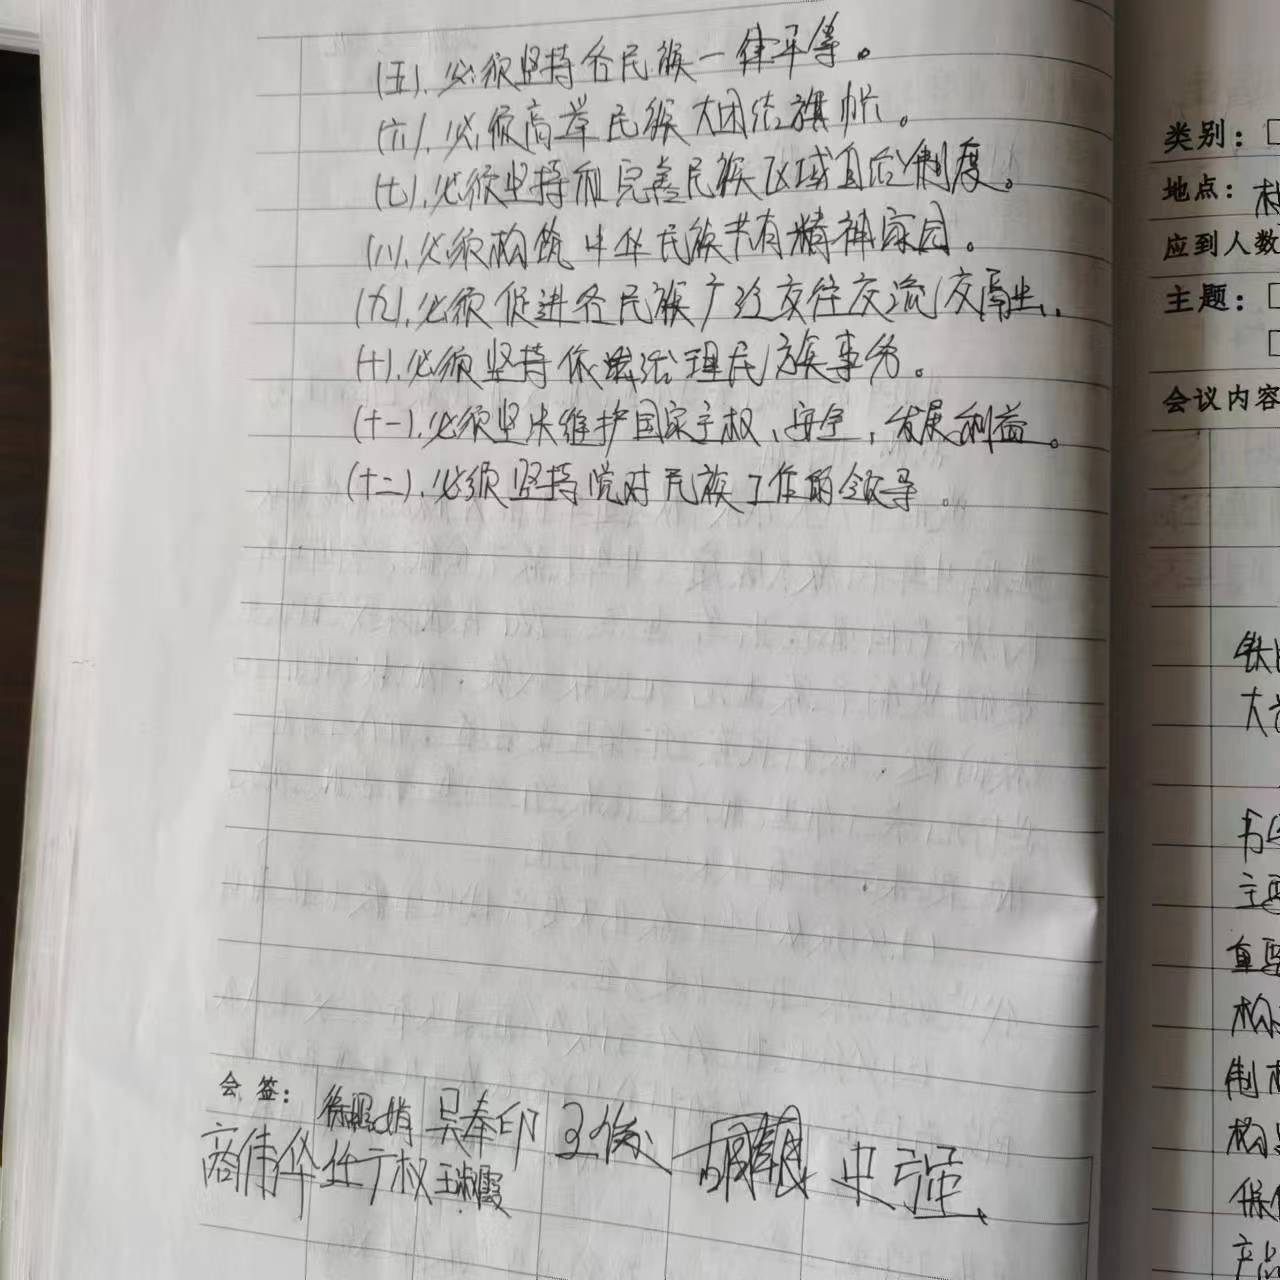 (五).必须坚持各民族一律平等。
(六).必须高举民族大团结旗帜。
(七).必须坚持和完善民族区域自治制度。
(八).必须构筑中华民族共有精神家园。
(九).必须促进各民族广泛交往交流交融.
(十).必须坚持依法治理民族事务。
(十一).必须坚决维护国家主权、安全,发展利益。
(十二).必须坚持党对民族工作的领导。
会签:
吴奉印
商伟华
史强
类别:
地点:
应到人数
主题:
会议内容
大
主要
重要
制